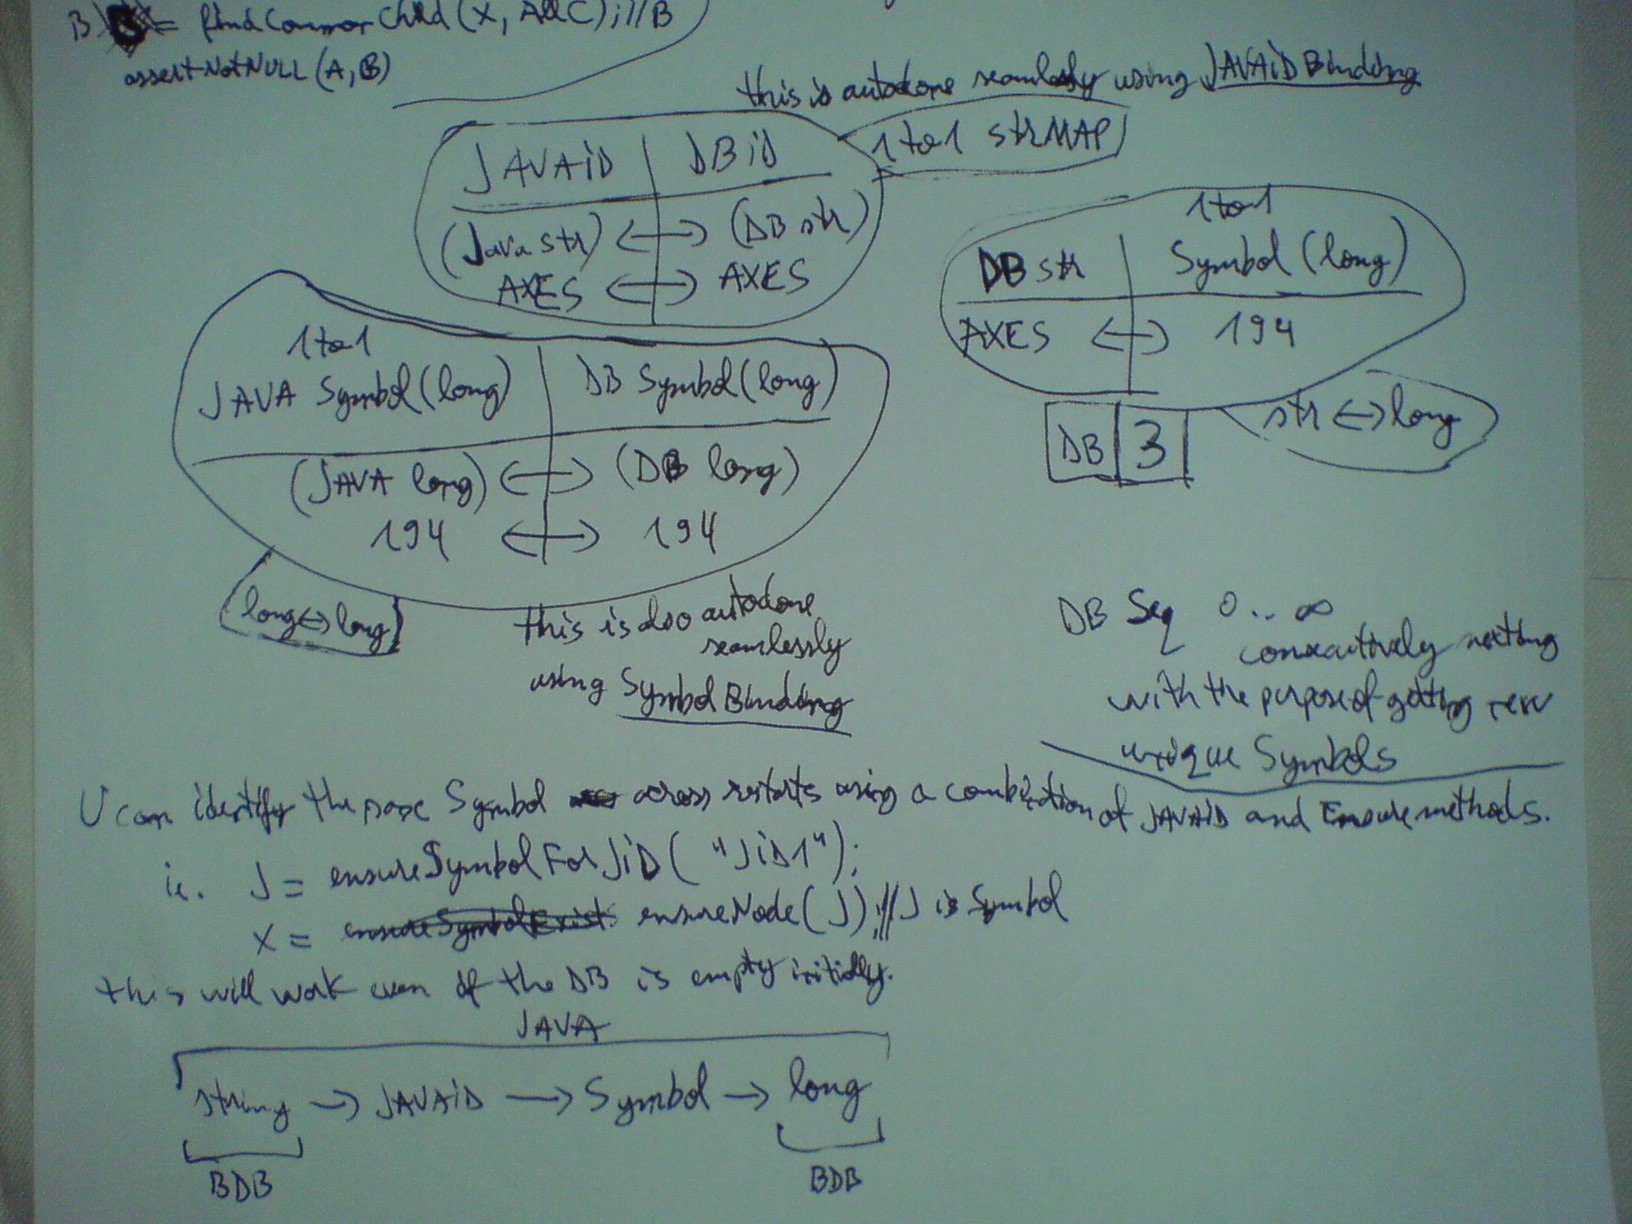 B = findCommonChild(X, AllC); // B
assertNotNULL(A, B)
this is autodone seamlessly using JAVAiD Binding
JAVAiD | DBiD
1to1 strMAP
(Java str) <-> (DB str)
AXES <-> AXES
1to1
DB str | Symbol (long)
AXES <-> 194
DB | 3
str <-> long
1to1
JAVA Symbol(long) | DB Symbol(long)
(JAVA long) <-> (DB long)
194 <-> 194
long<->long
this is also autodone
seamlessly
using Symbol Binding
DB Seq 0..∞
consecutively
with the purpose of getting new
unique Symbols
U can identify the same Symbol across restarts using a combination of JAVAiD and Ensure methods.
ie. J = ensureSymbolForJiD( "JiD1");
X = ensureSymbolExist ensureNode(J); // J is Symbol
this will work even if the DB is empty initially.
JAVA
string -> JAVAiD -> Symbol -> long
BDB BDB